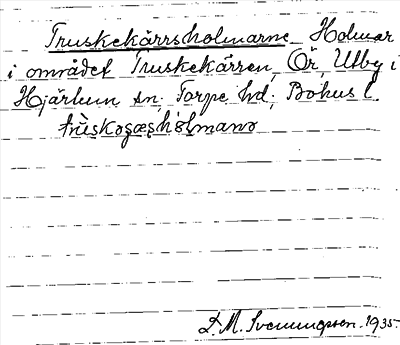 Truskekärrsholmarne Holmar
i området Truskekärren, Ör, Utby i
Hjärtum sn, Torpe hd; Bohus l.
D. M. Svenungsson. 1935.